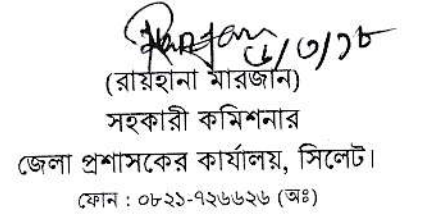 ৬/৩/১৮
(রায়হানা মারজান)
সহকারী কমিশনার
জেলা প্রশাসকের কার্যালয়, সিলেট।
ফোন : ০৮২১-৭২৬৬২৬ (অঃ)